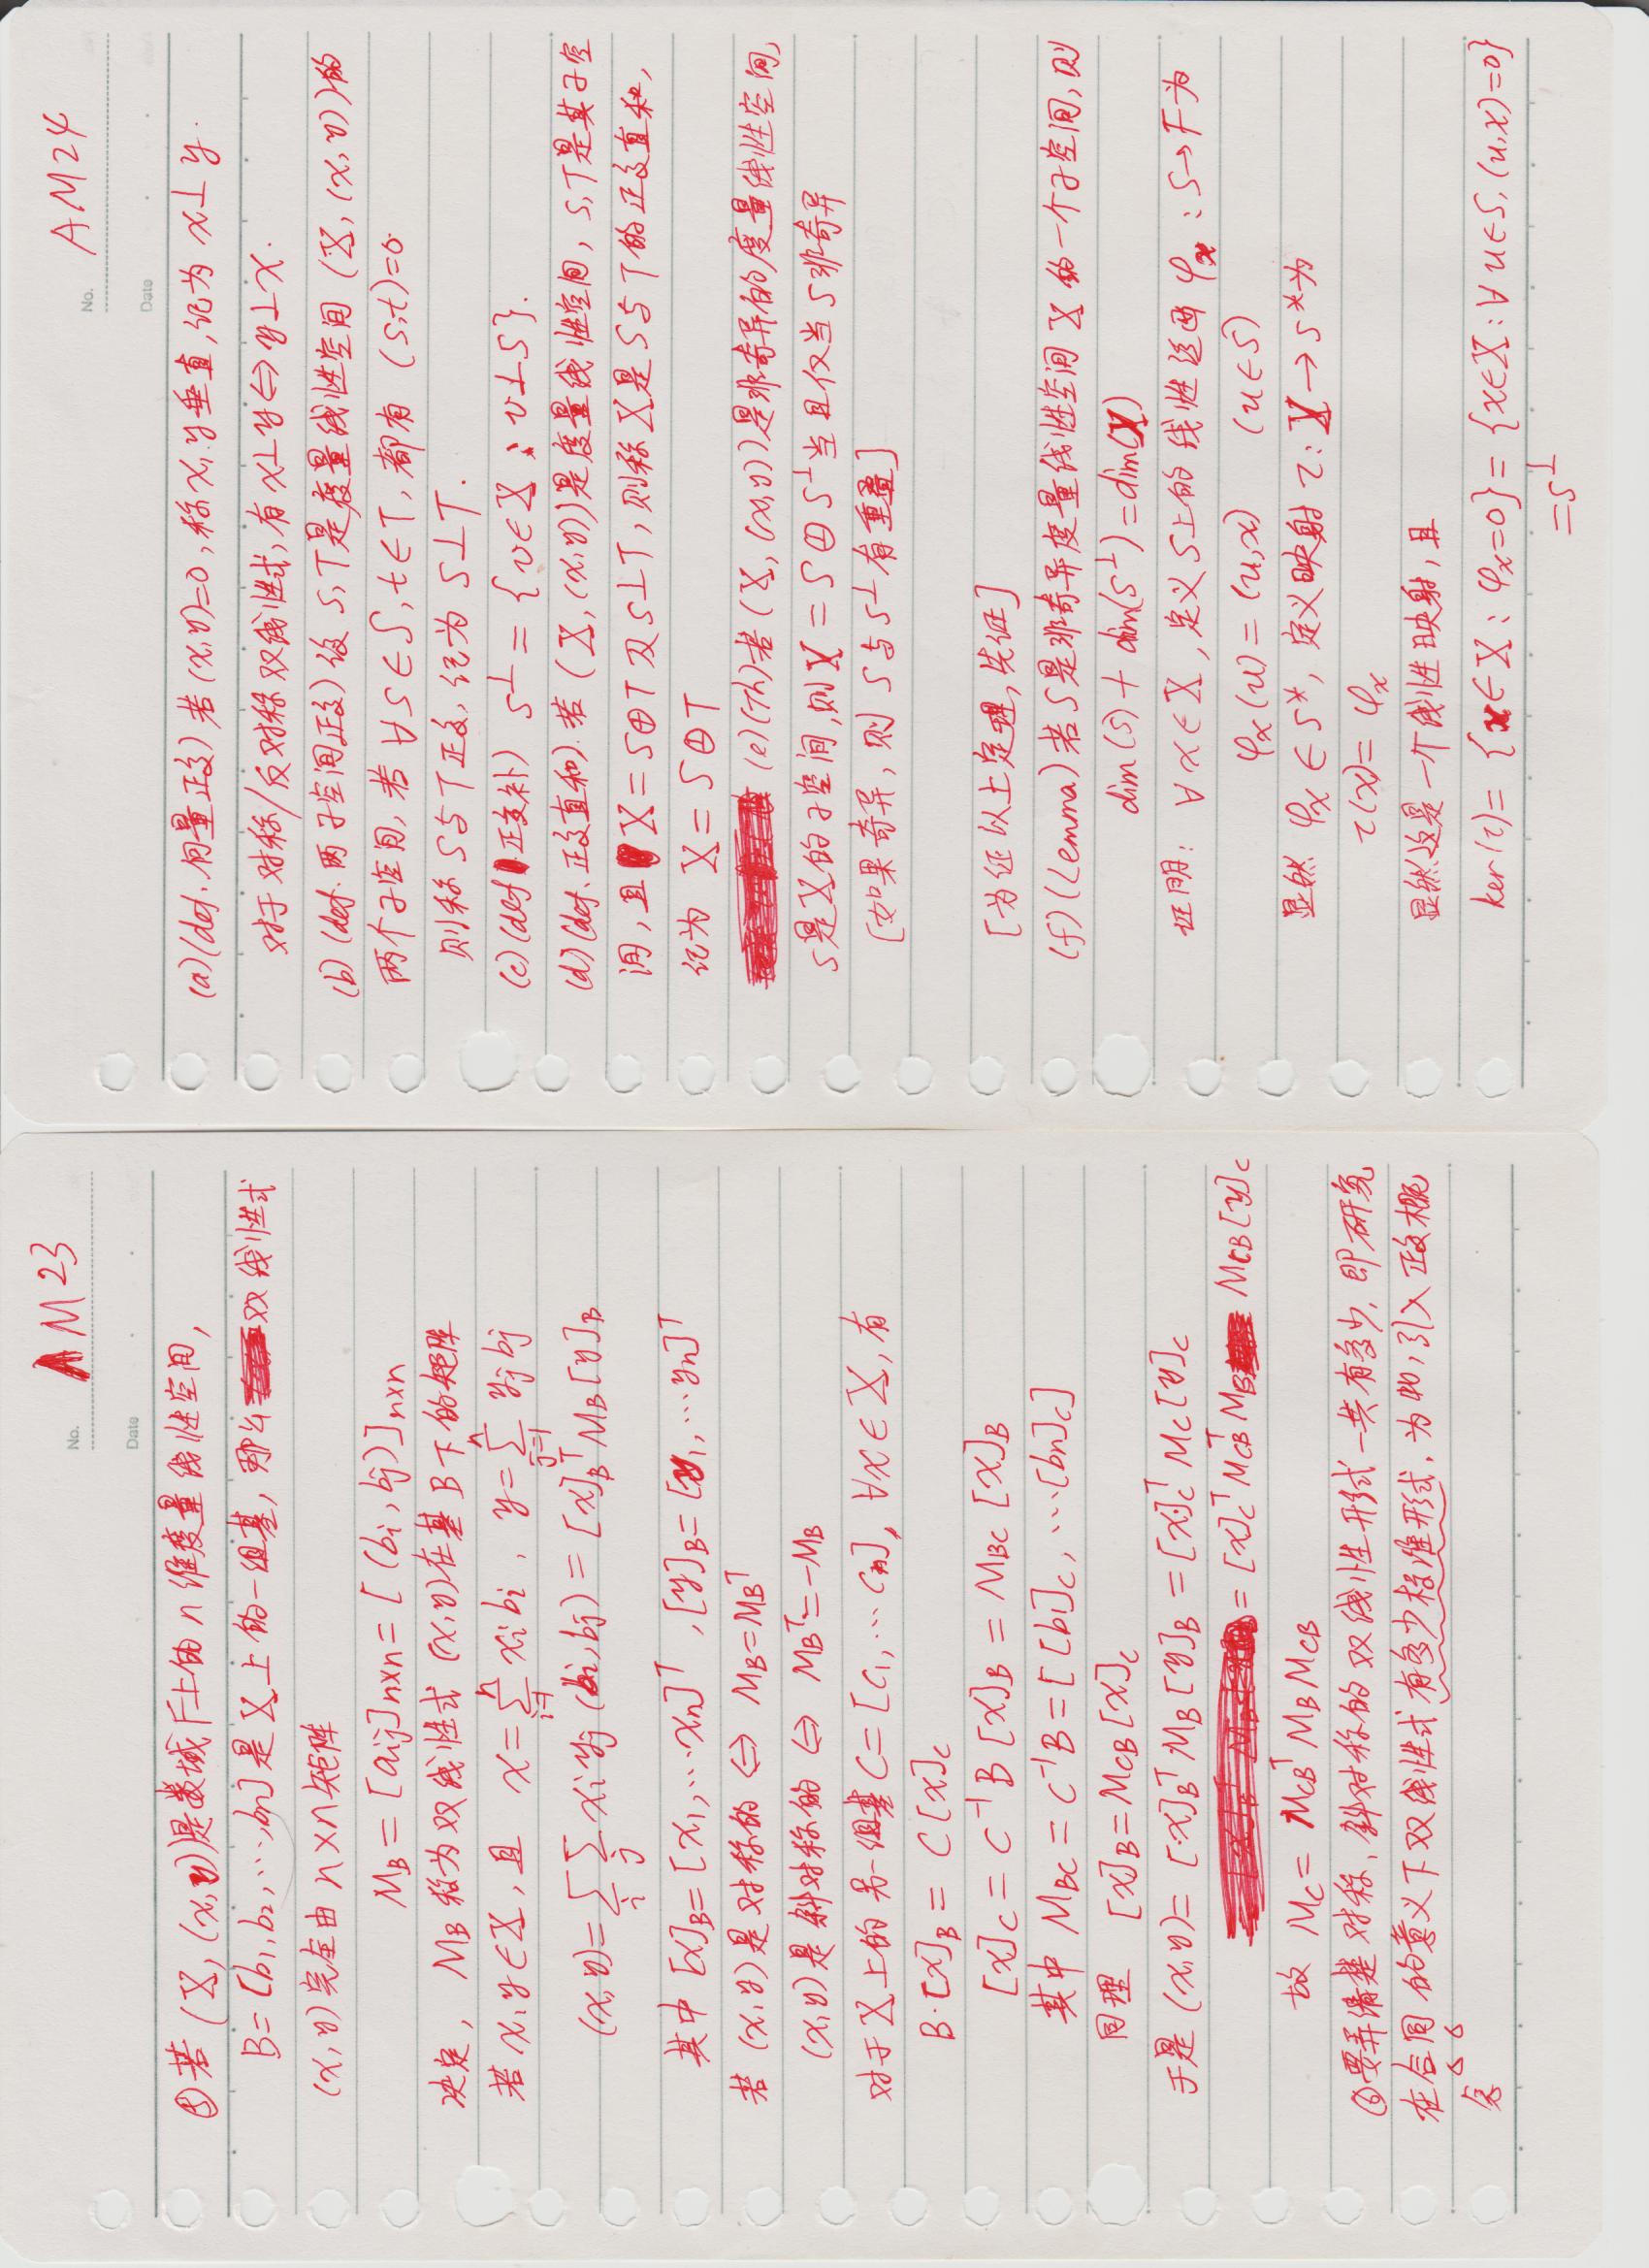 No. AM23
Date
⑤若 (X, (x,y))是数域F上的 n 维度量线性空间,
B=[b₁,b₂,…,bₙ] 是 X 上的一组基, 那么 双线性式
(x,y) 完全由 n×n 矩阵
M_B = [aᵢⱼ]ₙₓₙ = [ (bᵢ, bⱼ)]ₙₓₙ
决定, M_B 称为双线性式 (x,y)在基 B 下的矩阵
若 x,y∈X, 且 x=∑_{i=1}^{n} xᵢbᵢ, y=∑_{j=1}^{n} yⱼbⱼ
(x,y)=∑_i ∑_j xᵢyⱼ (bᵢ,bⱼ) = [x]_B^T M_B [y]_B
其中 [x]_B=[x₁,…xₙ]^T , [y]_B=[y₁,…yₙ]^T
若 (x,y) 是对称的 ⇔ M_B=M_B^T
(x,y)是斜对称的 ⇔ M_B^T=-M_B
对于X上的另一组基C=[c₁,…cₙ], ∀x∈X, 有
B·[x]_B = C[x]_C
[x]_C = C⁻¹B [x]_B = M_BC [x]_B
其中 M_BC = C⁻¹B=[[b₁]_C, …[bₙ]_C]
同理 [x]_B=M_CB [x]_C
于是 (x,y)= [x]_B^T M_B [y]_B = [x]_C^T M_C [y]_C
= [x]_C^T M_CB^T M_B M_CB [y]_C
故 M_C = M_CB^T M_B M_CB
⑥要弄清楚对称, 斜对称的双线性形式一共有多少, 即研究
在合同的意义下双线性式有多少标准形式. 为此, 引入正交概
念
No. AM24
Date
(a)(def. 向量正交) 若(x,y)=0, 称x,y垂直,记为 x⊥y.
对于对称/反对称双线性式, 有 x⊥y⇔y⊥x.
(b)(def. 两子空间正交) 设 S,T是度量线性空间 (X, (x,y))的
两个子空间, 若 ∀s∈S, t∈T, 都有 (s,t)=0
则称 S与T正交, 记为 S⊥T.
(c)(def 正交补) S^⊥ = {v∈X : v⊥S}.
(d)(def. 正交直和). 若 (X, (x,y))是度量线性空间, S,T是其子空
间, 且 X=S⊕T及S⊥T, 则称X是S与T的正交直和,
记为 X=S⦹T
(e)(Th)若(X, (x,y))是非奇异的度量线性空间,
S是X的子空间,则X=S⦹S^⊥当且仅当S非奇异
[如果奇异, 则 S与S^⊥有重叠]
[为证以上定理, 先证]
(f)(Lemma)若S是非奇异度量线性空间 X 的一个子空间, 则
dim(S)+dim(S^⊥)=dim(X)
证明: ∀x∈X, 定义S上的线性泛函 φₓ:S→F为
φₓ(u)=(u,x) (u∈S)
显然 φₓ∈S*, 定义映射 τ:X→S*为
τ(x)=φₓ
显然这是一个线性映射, 且
ker(τ)={x∈X: φₓ=0}={x∈X:∀u∈S, (u,x)=0}
=S^⊥